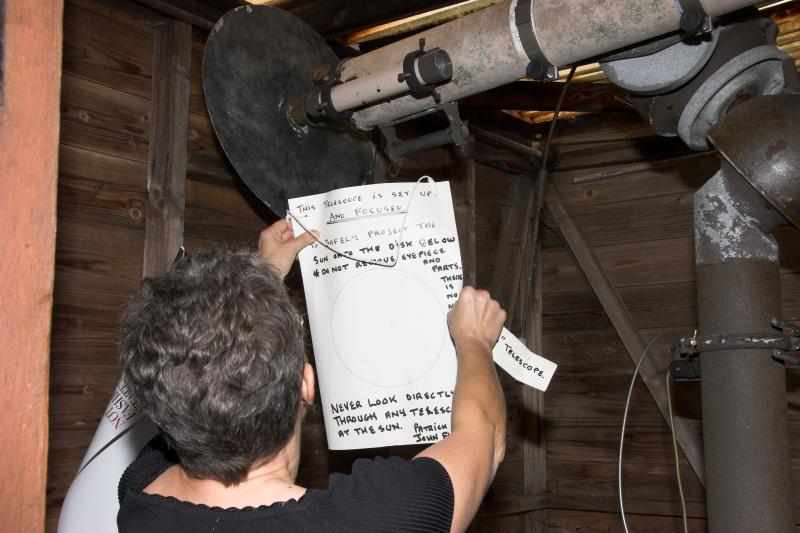 THIS TELESCOPE IS SET UP
AND FOCUSED
TO SAFELY PROJECT THE
SUN ONTO THE DISK BELOW
*DO NOT REMOVE EYEPIECE
AND
PARTS.
THERE
IS
NO
NEVER LOOK DIRECTLY
THROUGH ANY TELESC
AT THE SUN.
PATRICK
JOHN F
"TELESCOPE.
NOT